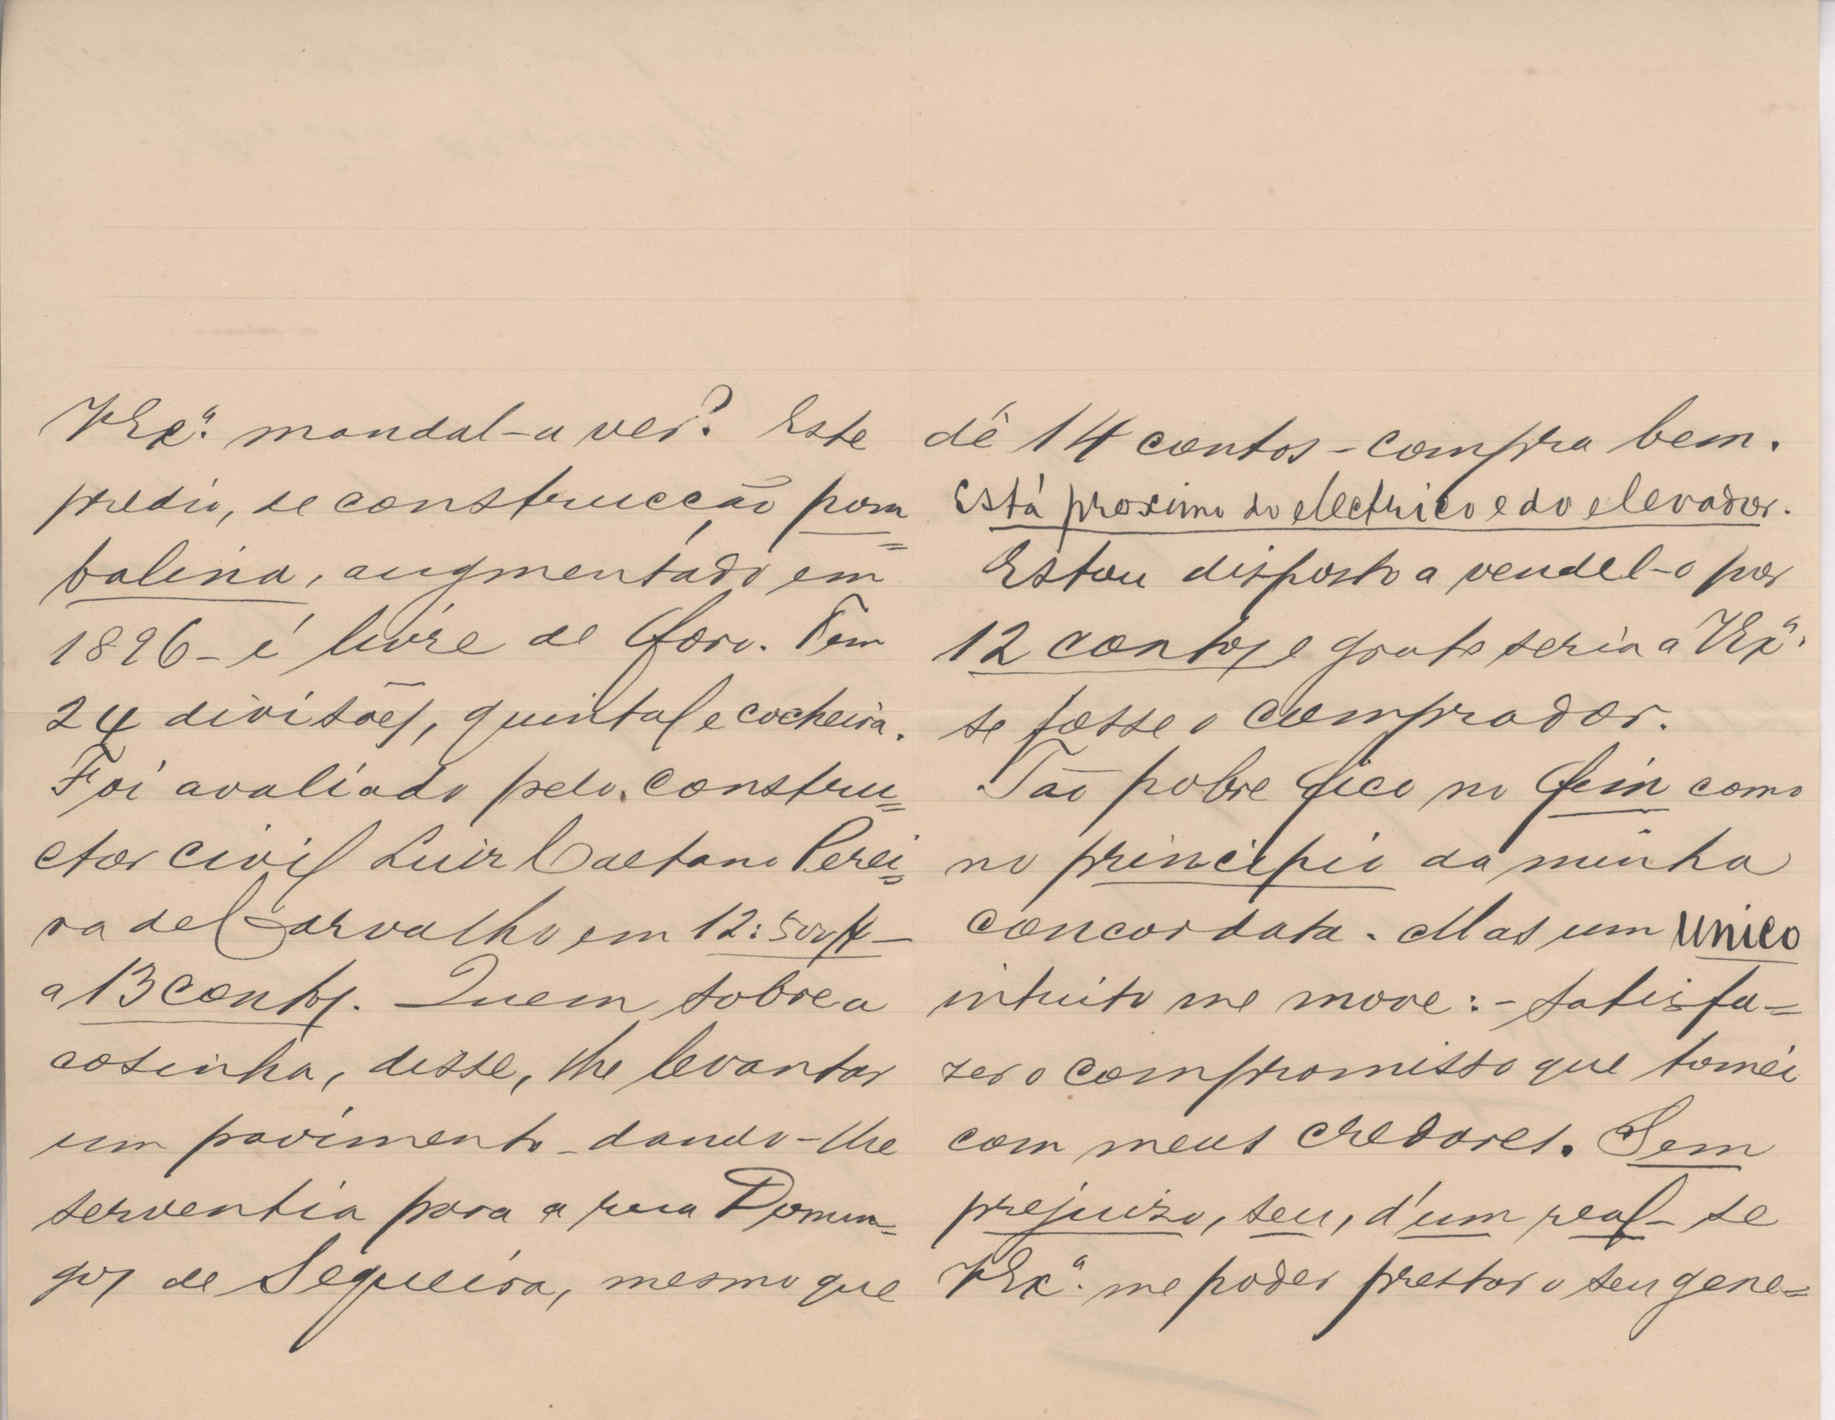 VExª. mandal-a ver? Este
predio, de construcção pom=
balina, augmentado em
1896 - é livre de foro. Tem
24 divisões, quintal e cocheira.
Foi avaliado pelo constru=
ctor civil Luiz Caetano Perei=
ra de Carvalho em 12:500$ -
a 13 contos. Quem sobre a
cosinha, disse, lhe levantar
um pavimento - dando-lhe
serventia para a rua Domin=
gos de Sequeira, mesmo que
dê 14 contos - compra bem.
Está proximo do electrico e do elevador.
Estou disposto a vendel-o por
12 contos e grato seria a VExª.
se fosse o comprador.
Tão pobre fico no fim como
no principio da minha
concordata. Mas um unico
intuito me move: - satisfa=
zer o compromisso que tomei
com meus credores. Sem
prejuizo, seu, d'um real - se
VExª. me poder prestar o seu gene=